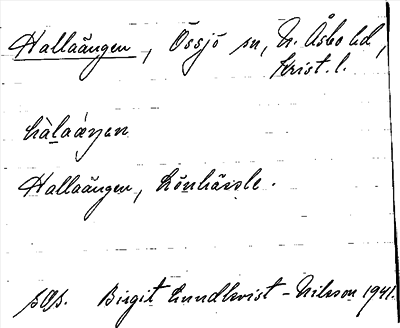 Hallaängen, Össjö sn, N. Åsbo hd,
Krist. l.
hàlaáŋən
Hallaängen, Lönhärde.
sgs. Birgit Lundkvist-Nilsson 1941.